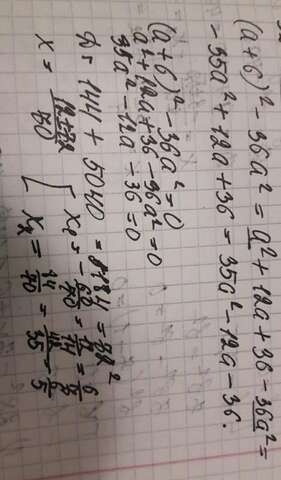 (a+6)² - 36a² = a² + 12a + 36 - 36a² =
- 35a² + 12a + 36 = 35a² - 12a - 36.
(a+6)² - 36a² = 0
a² + 12a + 36 - 36a² = 0
35a² - 12a - 36 = 0
D = 144 + 5040 = 5184 = 72²
x = [ x₁ = - 60/70 =
x₂ = 84/70 = 42/35 = 6/5